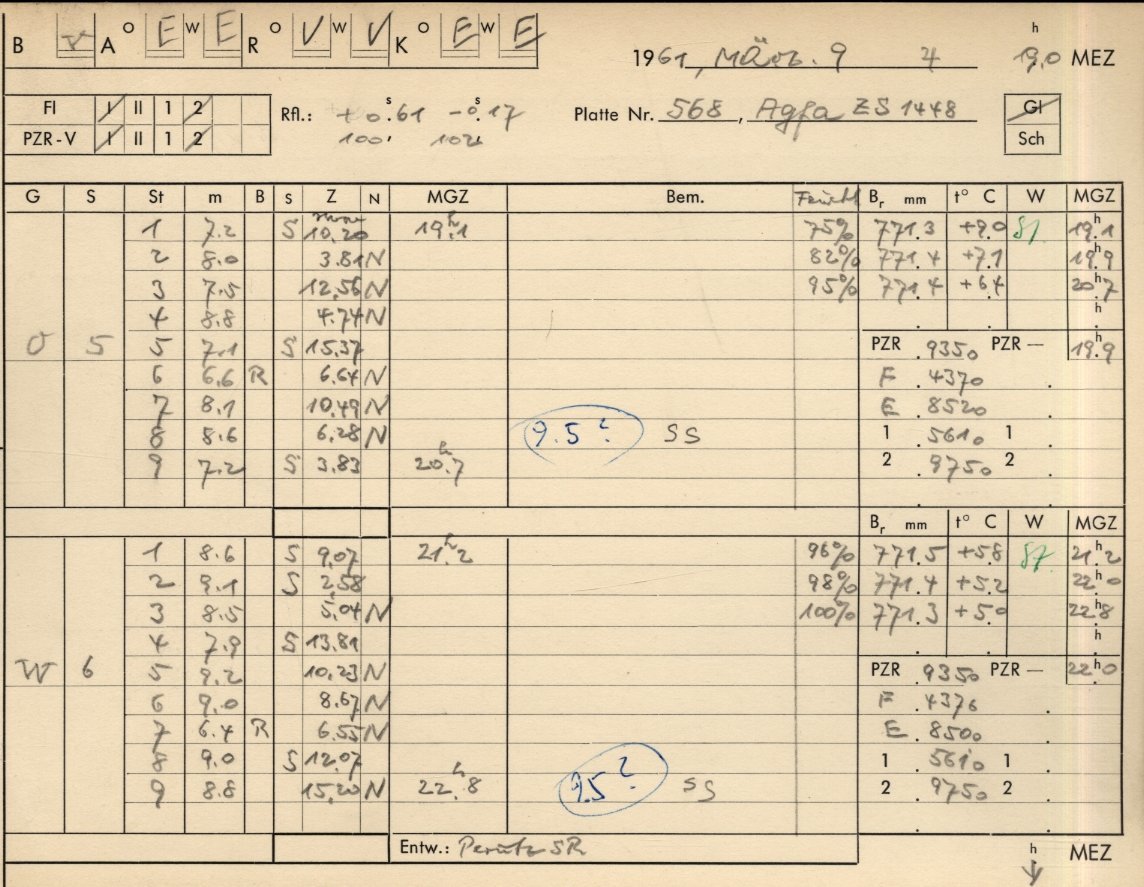 B V A O E W E R O V W V K O E W E 1961, März. 9 4 19,0 h MEZ
FI I II 1 2 Rfl.: +0.61 -0.17 Platte Nr. 568, Agfa ZS 1448 Gl
PZR-V I II 1 2 100 102 Sch
G S St m B S Z N MGZ Bem. Feucht Br mm t° C W MGZ
1 7.2 S 10,20 19.1 75% 771.3 +9.0 19.1
2 8.0 3.81 N 82% 771.4 +7.1 19.9
3 7.5 12,56 N 95% 771.4 +6.4 20.7
4 8.8 4.74 N h
O 5 5 7.1 S 15.37 PZR .9350 PZR — 19.9
6 6.6 R 6.64 N F .4370
7 8.1 10,49 N E .8520
8 8.6 6,28 N 9.5? SS 1 .5610 1
9 7.2 S 3,83 20.7 2 .9750 2
Br mm t° C W MGZ
1 8.6 S 9,07 21.2 96% 771.5 +5.8 21.2
2 9.1 S 2,58 98% 771.4 +5.2 22.0
3 8.5 5,04 N 100% 771.3 +5.0 22.8
4 7.9 S 13.81 h
W 6 5 9.2 10,23 N PZR .9350 PZR — 22.0
6 9.0 8.67 N F .4376
7 6.4 R 6.55 N E .8500
8 9.0 S 12,07 1 .5610 1
9 8.8 15,20 N 22.8 9.5? SS 2 .9750 2
Entw.: Perutz SR h MEZ